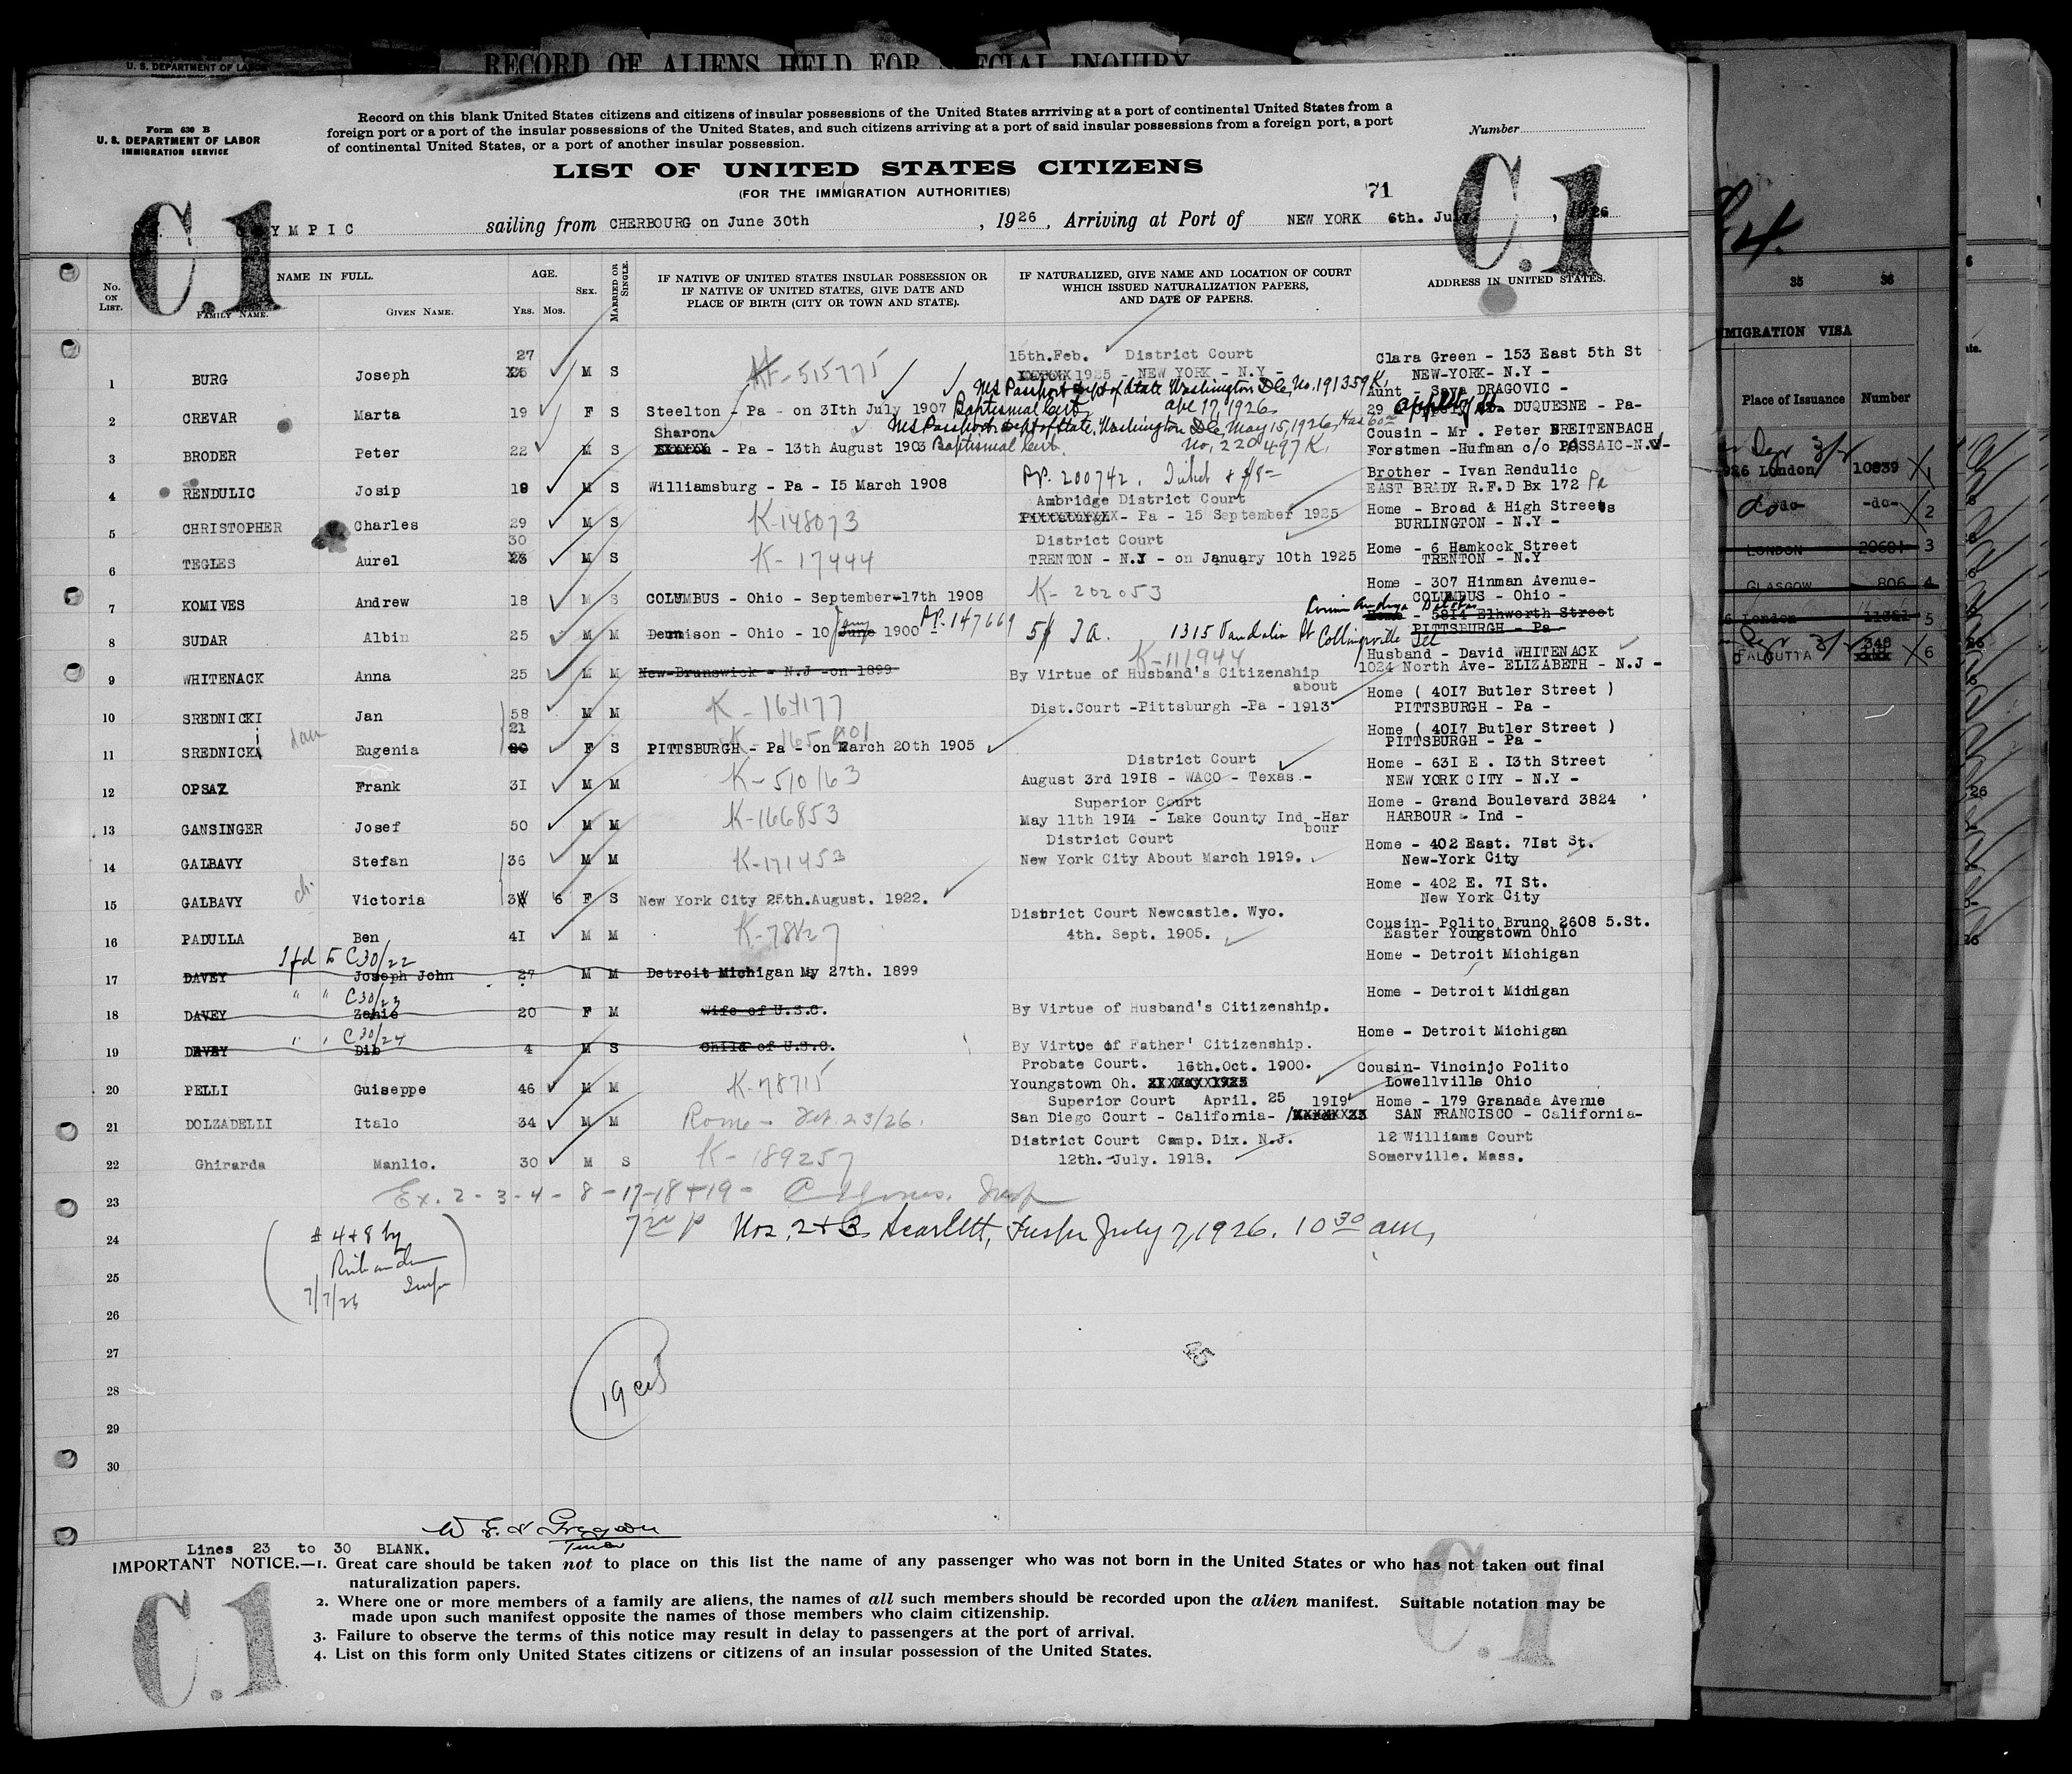 U. S. DEPARTMENT OF LABOR
RECORD OF ALIENS HELD FOR SPECIAL INQUIRY
Form 630 B
U. S. DEPARTMENT OF LABOR
IMMIGRATION SERVICE
Record on this blank United States citizens and citizens of insular possessions of the United States arrriving at a port of continental United States from a
foreign port or a port of the insular possessions of the United States, and such citizens arriving at a port of said insular possessions from a foreign port, a port
of continental United States, or a port of another insular possession.
Number
LIST OF UNITED STATES CITIZENS
(FOR THE IMMIGRATION AUTHORITIES)
71
C.1 C.1
OLYMPIC sailing from CHERBOURG on June 30th , 1926 , Arriving at Port of NEW YORK 6th. July , 1926
No. ON LIST. NAME IN FULL. FAMILY NAME. GIVEN NAME. AGE. YRS. MOS. SEX. MARRIED OR SINGLE.
IF NATIVE OF UNITED STATES INSULAR POSSESSION OR
IF NATIVE OF UNITED STATES, GIVE DATE AND
PLACE OF BIRTH (CITY OR TOWN AND STATE).
IF NATURALIZED, GIVE NAME AND LOCATION OF COURT
WHICH ISSUED NATURALIZATION PAPERS,
AND DATE OF PAPERS.
ADDRESS IN UNITED STATES.
27 15th.Feb. District Court Clara Green - 153 East 5th St
1 BURG Joseph M S 515775 1925 - NEW YORK - N.Y - NEW-YORK- N.Y -
US Passport Dept of State Washington D.C. No. 191359K. Aunt - Sava DRAGOVIC -
2 CREVAR Marta 19 F S Steelton - Pa - on 3Ith July 1907 Baptismal Cert. 17, 1926 29 Appleby DUQUESNE - Pa-
Sharon US Passport Dept of State, Washington D.C. May 15, 1926 Cousin - Mr . Peter BREITENBACH
3 BRODER Peter 22 M S - Pa - 13th August 1903 Baptismal Cert. No. 220497K. Forstmen -Hufman c/o PASSAIC-N.J-
PP. 200742. Ticket + $8- Brother - Ivan Rendulic
4 RENDULIC Josip 18 M S Williamsburg - Pa - I5 March 1908 EAST BRADY R.F.D Bx 172 Pa
Ambridge District Court Home - Broad & High Streets
5 CHRISTOPHER Charles 29 M S K-148073 Pittsburgh - Pa - 15 September 1925 BURLINGTON - N.Y -
30 District Court Home - 6 Hamkock Street
6 TEGLES Aurel 23 M S K- 17444 TRENTON - N.J - on January 10th 1925 TRENTON - N.Y
Home - 307 Hinman Avenue-
7 KOMIVES Andrew 18 M S COLUMBUS - Ohio - September-17th 1908 K- 202053 COLUMBUS - Ohio -
Home - 5814 Elhworth Street
8 SUDAR Albin 25 M M Dennison - Ohio - 10 June 1900 PP-147669 1315 Vandalia St Collinsville Ill PITTSBURGH - Pa
K-111944 Husband - David WHITENACK
9 WHITENACK Anna 25 M M New-Brunswick - N.J -on-1899 By Virtue of Husband's Citizenship 1024 North Ave- ELIZABETH - N.J -
about Home ( 40I7 Butler Street )
10 SREDNICKI Jan 58 M M K-164177 Dist.Court -Pittsburgh -Pa - 1913 PITTSBURGH - Pa -
21 Home ( 40I7 Butler Street )
11 SREDNICKI dau Eugenia 20 F S PITTSBURGH - Pa - on March 20th 1905 PITTSBURGH - Pa -
District Court Home - 63I E . I3th Street
12 OPSAZ Frank 3I M M K-510163 August 3rd I9I8 - WACO - Texas.- NEW YORK CITY - N.Y -
Superior Court Home - Grand Boulevard 3824
13 GANSINGER Josef 50 M M K-166853 May 11th 19I4 - Lake County Ind -Har bour HARBOUR - Ind -
District Court Home - 402 East. 7Ist St.
14 GALBAVY Stefan 36 M M K-171453 New York City About March 1919. New-York City
Home - 402 E. 7I St.
15 GALBAVY ch. Victoria 3 6 F S New York City 25th.August. 1922. New York City
District Court Newcastle. Wyo. Cousin- Polito Bruno 2608 5.St.
16 PADULLA Ben 4I M M K-78827 4th. Sept. 1905. Easter Youngstown Ohio
Tfd to C30/22 Home - Detroit Michigan
17 DAVEY Joseph John 27 M M Detroit Michigan My 27th. 1899
" " C30/23 Home - Detroit Michigan
18 DAVEY Zehie 20 F M Wife of U.S.C. By Virtue of Husband's Citizenship.
" " C30/24 Home - Detroit Michigan
19 DAVEY Dib 4 M S Child of U.S.C. By Virtue of Father' Citizenship.
Probate Court. 16th.Oct. 1900. Cousin- Vincinjo Polito
20 PELLI Guiseppe 46 M M K-78715 Youngstown Oh. Lowellville Ohio
Superior Court April. 25 1919 Home - 179 Granada Avenue
21 DOLZADELLI Italo 34 M M Rome - 23/26. San Diego Court - California- SAN FRANCISCO - California-
District Court Camp. Dix. N.J. 12 Williams Court
22 Ghirarda Manlio. 30 M S K-189257 12th.-July. 1918. Somerville. Mass.
23 Ex. 2-3-4-8-17-18+19- Insp
24 Nos. 2+3 Scarlett, Inspr July 7, 1926. 10 30 am,
# 4+8 by
7/7/26 Insp
25
26
27
28
29
30
W
Lines 23 to 30 BLANK.
IMPORTANT NOTICE.—1. Great care should be taken not to place on this list the name of any passenger who was not born in the United States or who has not taken out final
naturalization papers.
2. Where one or more members of a family are aliens, the names of all such members should be recorded upon the alien manifest. Suitable notation may be
made upon such manifest opposite the names of those members who claim citizenship.
3. Failure to observe the terms of this notice may result in delay to passengers at the port of arrival.
4. List on this form only United States citizens or citizens of an insular possession of the United States.
C.1 C.1
35 36
IMMIGRATION VISA
Place of Issuance Number
926 London 10839 1
-do- -do- 2
LONDON 20681 3
GLASGOW 806 4
London 5
348 6